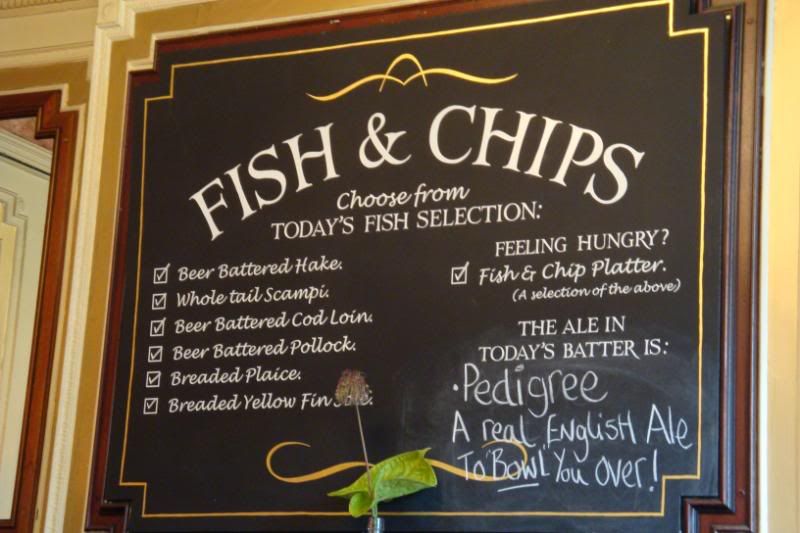 FISH & CHIPS
Choose from
TODAY'S FISH SELECTION:
Beer Battered Hake.
Whole tail Scampi.
Beer Battered Cod Loin.
Beer Battered Pollock.
Breaded Plaice.
Breaded Yellow Fin
FEELING HUNGRY?
Fish & Chip Platter.
(A selection of the above)
THE ALE IN
TODAY'S BATTER IS:
·Pedigree
A real English Ale
To 'Bowl' You Over!